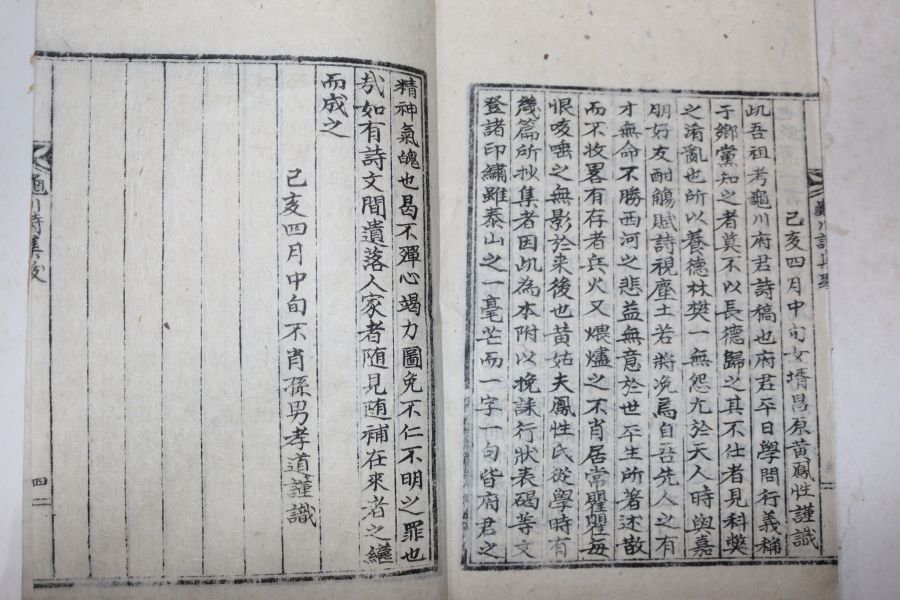 己亥四月中旬女壻昌原黃鳳性謹識
此吾祖考龜川府君詩稿也府君平日學問行義稱
于鄕黨知之者莫不以長德歸之其不仕者見科獘
之淆亂也所以養德林樊一無怨尤於天人時與嘉
朋好友酣觴賦詩視塵土若將浼焉自吾先人之有
才無命不勝西河之悲益無意於世平生所著述散
而不收畧有存者兵火又煨燼之不肖居常瞿瞿每
恨咳唾之無影於来後也黄姑夫鳳性氏從學時有
幾篇所抄集者因此為本附以挽誄行狀表碣等文
登諸印繡雖泰山之一毫芒而一字一句皆府君之
精神氣魄也曷不殫心竭力圖免不仁不明之罪也
㢤如有詩文間遺落人家者随見随補在來者之繼
而成之
己亥四月中旬不肖孫男孝道謹識
龜川詩集跋
四二